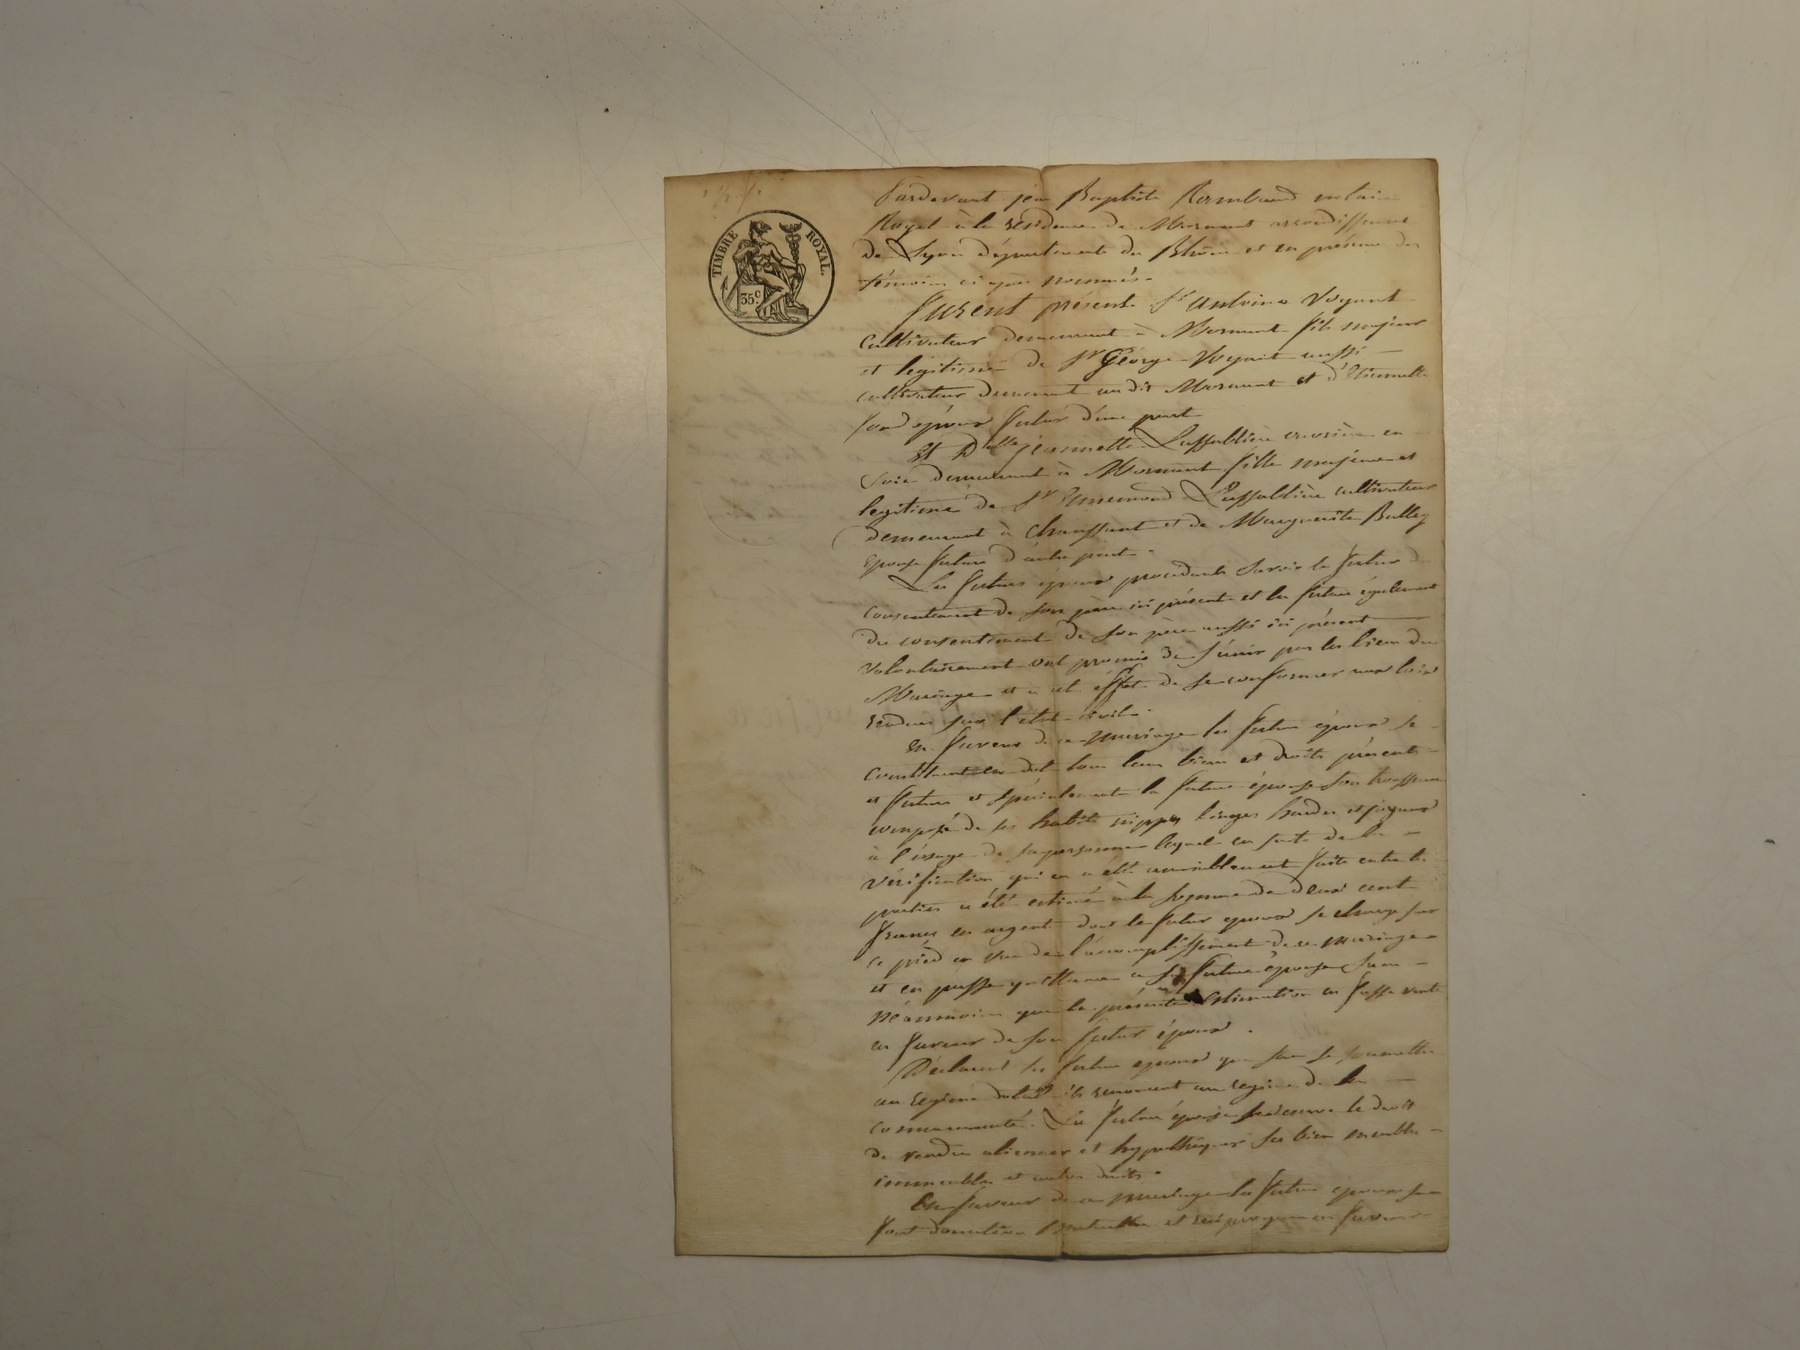 TIMBRE ROYAL.
35c
Pardevant jean Baptiste Rambaud notaire
Royal à la résidence de Mornant arrondissement
de Lyon département du Rhône et en présence des
témoins ci après nommés.
furent présents Sr antoine Voyant
cultivateur demeurant à Mornant fils majeur
et légitime de Sr George Voyant aussi
cultivateur demeurant au dit Mornant et d'Etiennette
époux futur d'une part
Et Dlle jeannette Laffablière ouvrière en
Soie demeurant à Mornant fille majeure et
legitime de Sr Ennemond Laffablière cultivateur
demeurant à chaussant et de Marguerite
Epouse future d'autre part.
Les futurs époux procédants savoir le futur du
consentement de son père ici présent et la future également
du consentement de son père aussi ici présent
volontairement ont promis de s'unir par les liens du
Mariage et à cet effet de se conformer aux loix
rendues sur l'état civil.
En faveur de ce mariage les futurs époux se
constituent en dot tous leurs biens et droits présents
et futurs et spécialement la future épouse son trousseau
composé de ses habits nippes linges hardes et joyaux
à l'usage de sa personne lequel en suite de la
vérification qui en a été amiablement faite entre les
parties a été estimé à la somme de deux cent
francs en argent dont le futur époux se charge sur
ce pied en vue de l'accomplissement de ce mariage
et en passe quittance à sa future épouse sans
Néanmoins que la présente estimation en fasse vente
en faveur de son futur époux.
Déclarent les futurs époux que pour se soumettre
au régime dotal ils renoncent au régime de la
communauté. La future épouse se réserve le droit
de vendre aliéner et hypothéquer ses biens meubles
immeubles et autres droits.
En faveur de ce mariage les futurs époux se
font donation mutuelle et réciproque en faveur